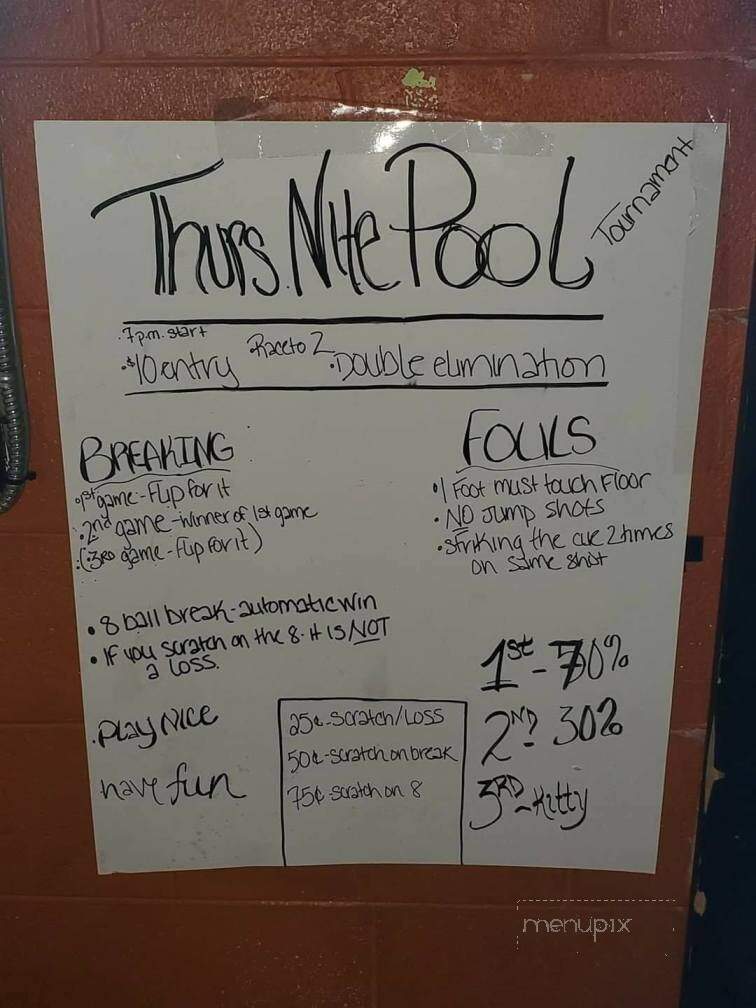 Thurs. Nite Pool
Tournament
.7p.m. start
.$10 entry
.Race to 2
.Double elimination
BREAKING
•1st game - Flip for it
•2nd game - winner of 1st game
•(3RD game - Flip for it)
FOULS
•1 Foot must touch Floor
•NO Jump shots
•striking the cue 2 times
on same shot
•8 ball break - automatic win
•If you scratch on the 8 - it is NOT
a loss.
1st - 70%
2ND - 30%
3RD - Kitty
.Play Nice
have fun
25¢ - Scratch/Loss
50¢ - Scratch on break
75¢ - Scratch on 8
menupix